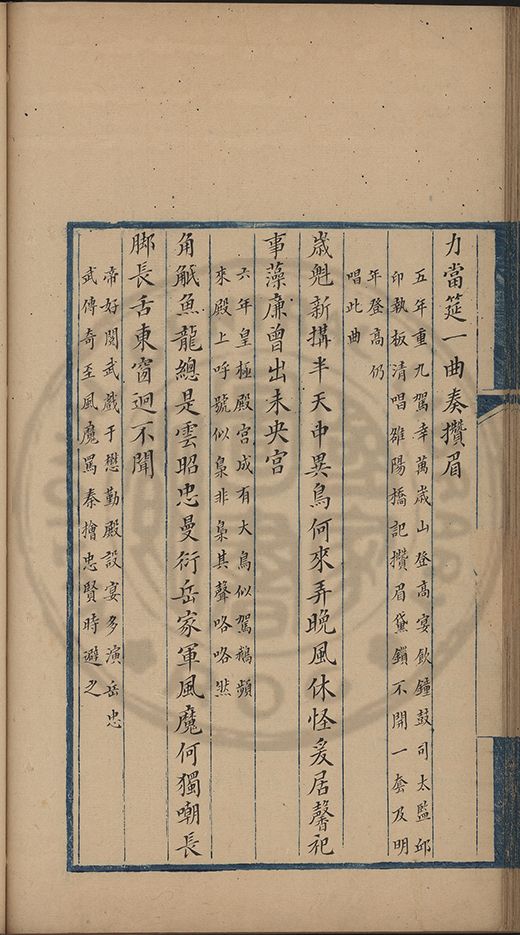 力當筵一曲奏攢眉
五年重九駕幸萬歲山登高宴飲鐘鼓司太監邱
印執板清唱雒陽橋記攢眉黛鎖不開一套及明
年登高仍
唱此曲
歲魁新搆半天中異鳥何來弄晚風休怪爰居馨祀
事藻廉曾出未央宮
六年皇極殿宮成有大鳥似駕鵝頻
來殿上呼號似梟非梟其聲咯咯然
角觝魚龍總是雲昭忠曼衍岳家軍風魔何獨嘲長
脚長舌東窗迥不聞
帝好閱武戲于懋勤殿設宴多演岳忠
武傳奇至風魔罵秦檜忠賢時避之